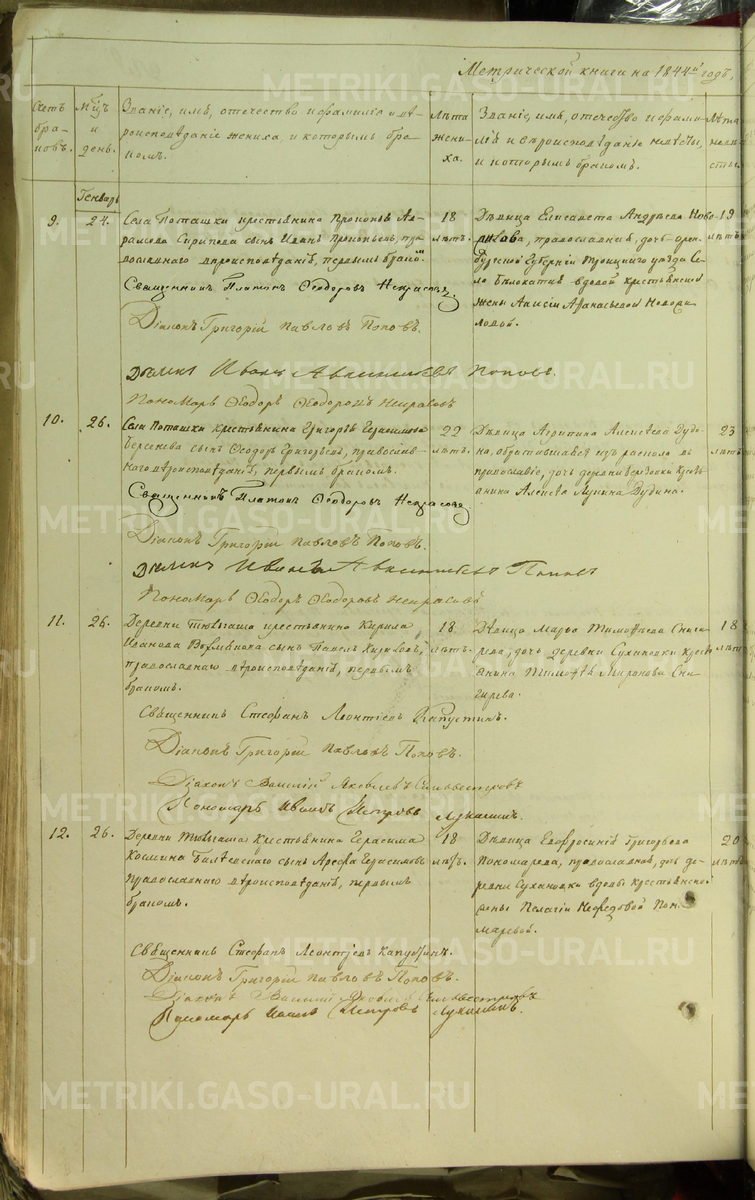 Метрической книги на 1844й годъ,
Счетъ браковъ.
Мѣсяцъ и день.
Званіе, имѧ, отечество и фамилія и вѣ-
роисповѣданіе жениха, и которымъ бра-
комъ.
Лѣта жениха.
Званіе, имѧ, отечество и фами-
лія и вѣроисповѣданіе невѣсты,
и которымъ бракомъ.
Лѣта невѣсты.
Генварь
9. 24. Села Поташки крестьянина Прокопья Ав-
рамова сынъ Иванъ Прокопьевъ, пра-
вославнаго вѣроисповѣданія, первымъ бракомъ
18 лѣтъ.
Дѣвица Елисавета Андреева
православная, дочь Орен-
бургской Губерніи Троицкаго уѣзда Се-
ла вдовой крестьянской
жены Анисіи Афанасьевой
19 лѣтъ
Священникъ Платонъ Ѳеодоровъ Некрасовъ.
Діаконъ Григорій Павловъ Поповъ.
Дьячекъ Иванъ Поповъ.
Пономарь Ѳеодоръ Ѳеодоровъ Некрасовъ
10. 26. Села Поташки крестьянина Григорья Герасимова
Берсенева сынъ Ѳеодоръ Григорьевъ, православ-
наго вѣроисповѣданія, первымъ бракомъ.
22 лѣтъ.
Дѣвица Агрипина Алексѣева Дуди-
на, обратившаяся изъ раскола въ
православіе, дочь деревни кресть-
янина Алексѣя Лукина Дудина.
23 лѣтъ
Священникъ Платонъ Ѳеодоровъ Некрасовъ
Діаконъ Григорій Павловъ Поповъ.
Дьячекъ Иванъ Поповъ
Пономарь Ѳеодоръ Ѳеодоровъ Некрасовъ
11. 26. Деревни крестьянина Кирила
Иванова сынъ Павелъ Кириловъ,
православнаго вѣроисповѣданія, первымъ
бракомъ.
18 лѣтъ.
Дѣвица Марья Тимоѳеева Сниги-
рева, дочь деревни Сухановки кресть-
янина Тимоѳея Миронова Сни-
гирева.
18 лѣтъ
Священникъ Стефанъ Леонтіевъ Капустинъ.
Діаконъ Григорій Павловъ Поповъ.
Діаконъ Василій Яковлевъ Сильвестровъ
Пономарь Иванъ Петровъ Лукашинъ.
12. 26. Деревни крестьянина Герасима
Козмина сынъ Арефа Герасимовъ
православнаго вѣроисповѣданія, первымъ
бракомъ.
18 лѣтъ.
Дѣвица Евфросинія Григорьева
Пономарева, православная, дочь де-
ревни Сухановки вдовы крестьянской
жены Пелагіи Нефедовой Поно-
маревой.
20 лѣтъ
Священникъ Стефанъ Леонтіевъ Капустинъ.
Діаконъ Григорій Павловъ Поповъ.
Діаконъ Василій Яковлевъ Сильвестровъ
Пономарь Иванъ Петровъ Лукашинъ.
METRIKI.GASO-URAL.RU